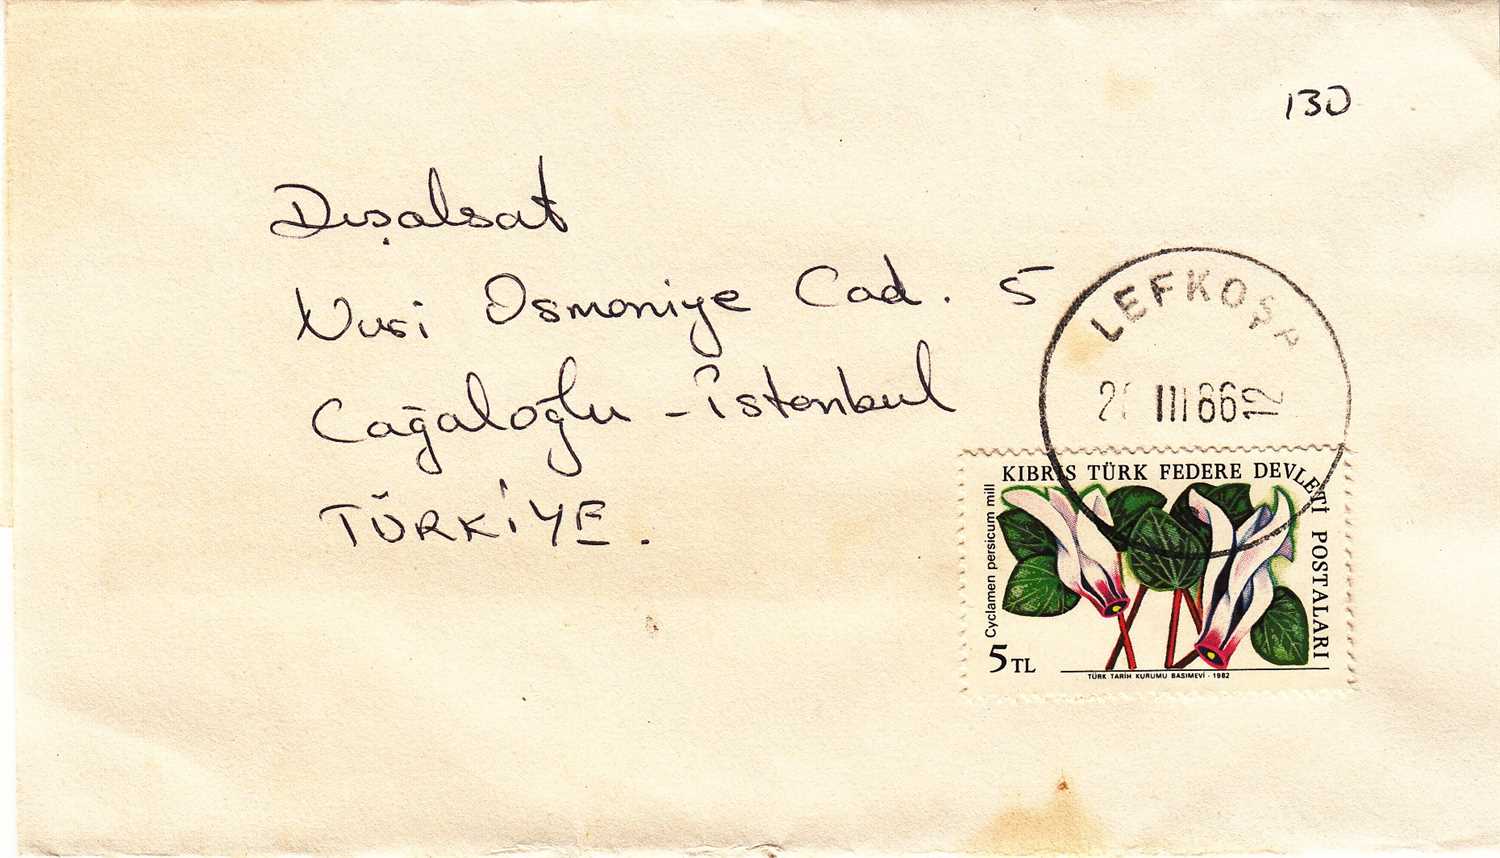 130
Dışalsat
Nusi Osmaniye Cad. 5
Cağaloğlu - İstanbul
TÜRKİYE.
LEFKOŞA
III 86 12
KIBRIS TÜRK FEDERE DEVLETİ POSTALARI
Cyclamen persicum mill
5 TL
TÜRK TARİH KURUMU BASIMEVİ - 1982